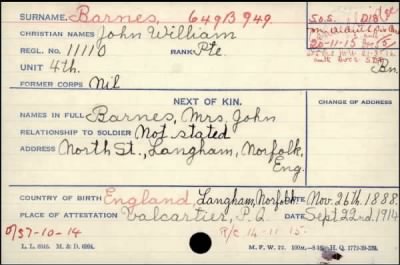 SURNAME. Barnes, 649B949
CHRISTIAN NAMES John William
REGL. NO. 11110 RANK. Pte.
UNIT 4th. Bn
FORMER CORPS Nil
S.O.S.
20-11-15
NEXT OF KIN.
CHANGE OF ADDRESS
NAMES IN FULL Barnes, Mrs. John
RELATIONSHIP TO SOLDIER Not stated
ADDRESS North St., Langham, Norfolk,
Eng.
COUNTRY OF BIRTH England, Langham, Norfolk DATE Nov. 26th. 1888.
PLACE OF ATTESTATION Valcartier, P.Q. DATE Sept 22nd. 1914
0/37-10-14 R/C 14-11-15.
L. L. M. & D. M. F. W. 22. H.Q. 1772-39-339.